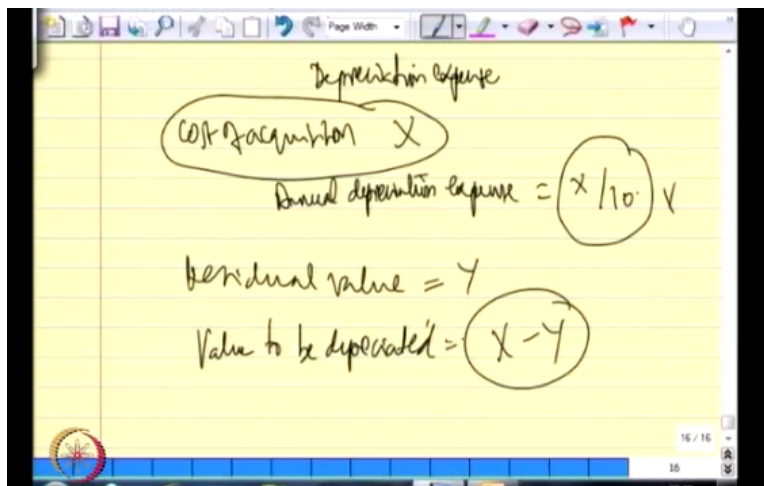 Page Width
Depreciation expense
Cost of acquisition X
Annual depreciation expense = X/10
Residual value = Y
Value to be depreciated = X-Y
16 / 16
16